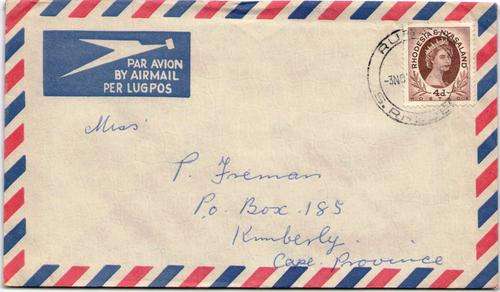 PAR AVION
BY AIRMAIL
PER LUGPOS
RHODESIA & NYASALAND
4d
Miss
P. Freman
P.O. Box 185
Kimberly.
Cape Province